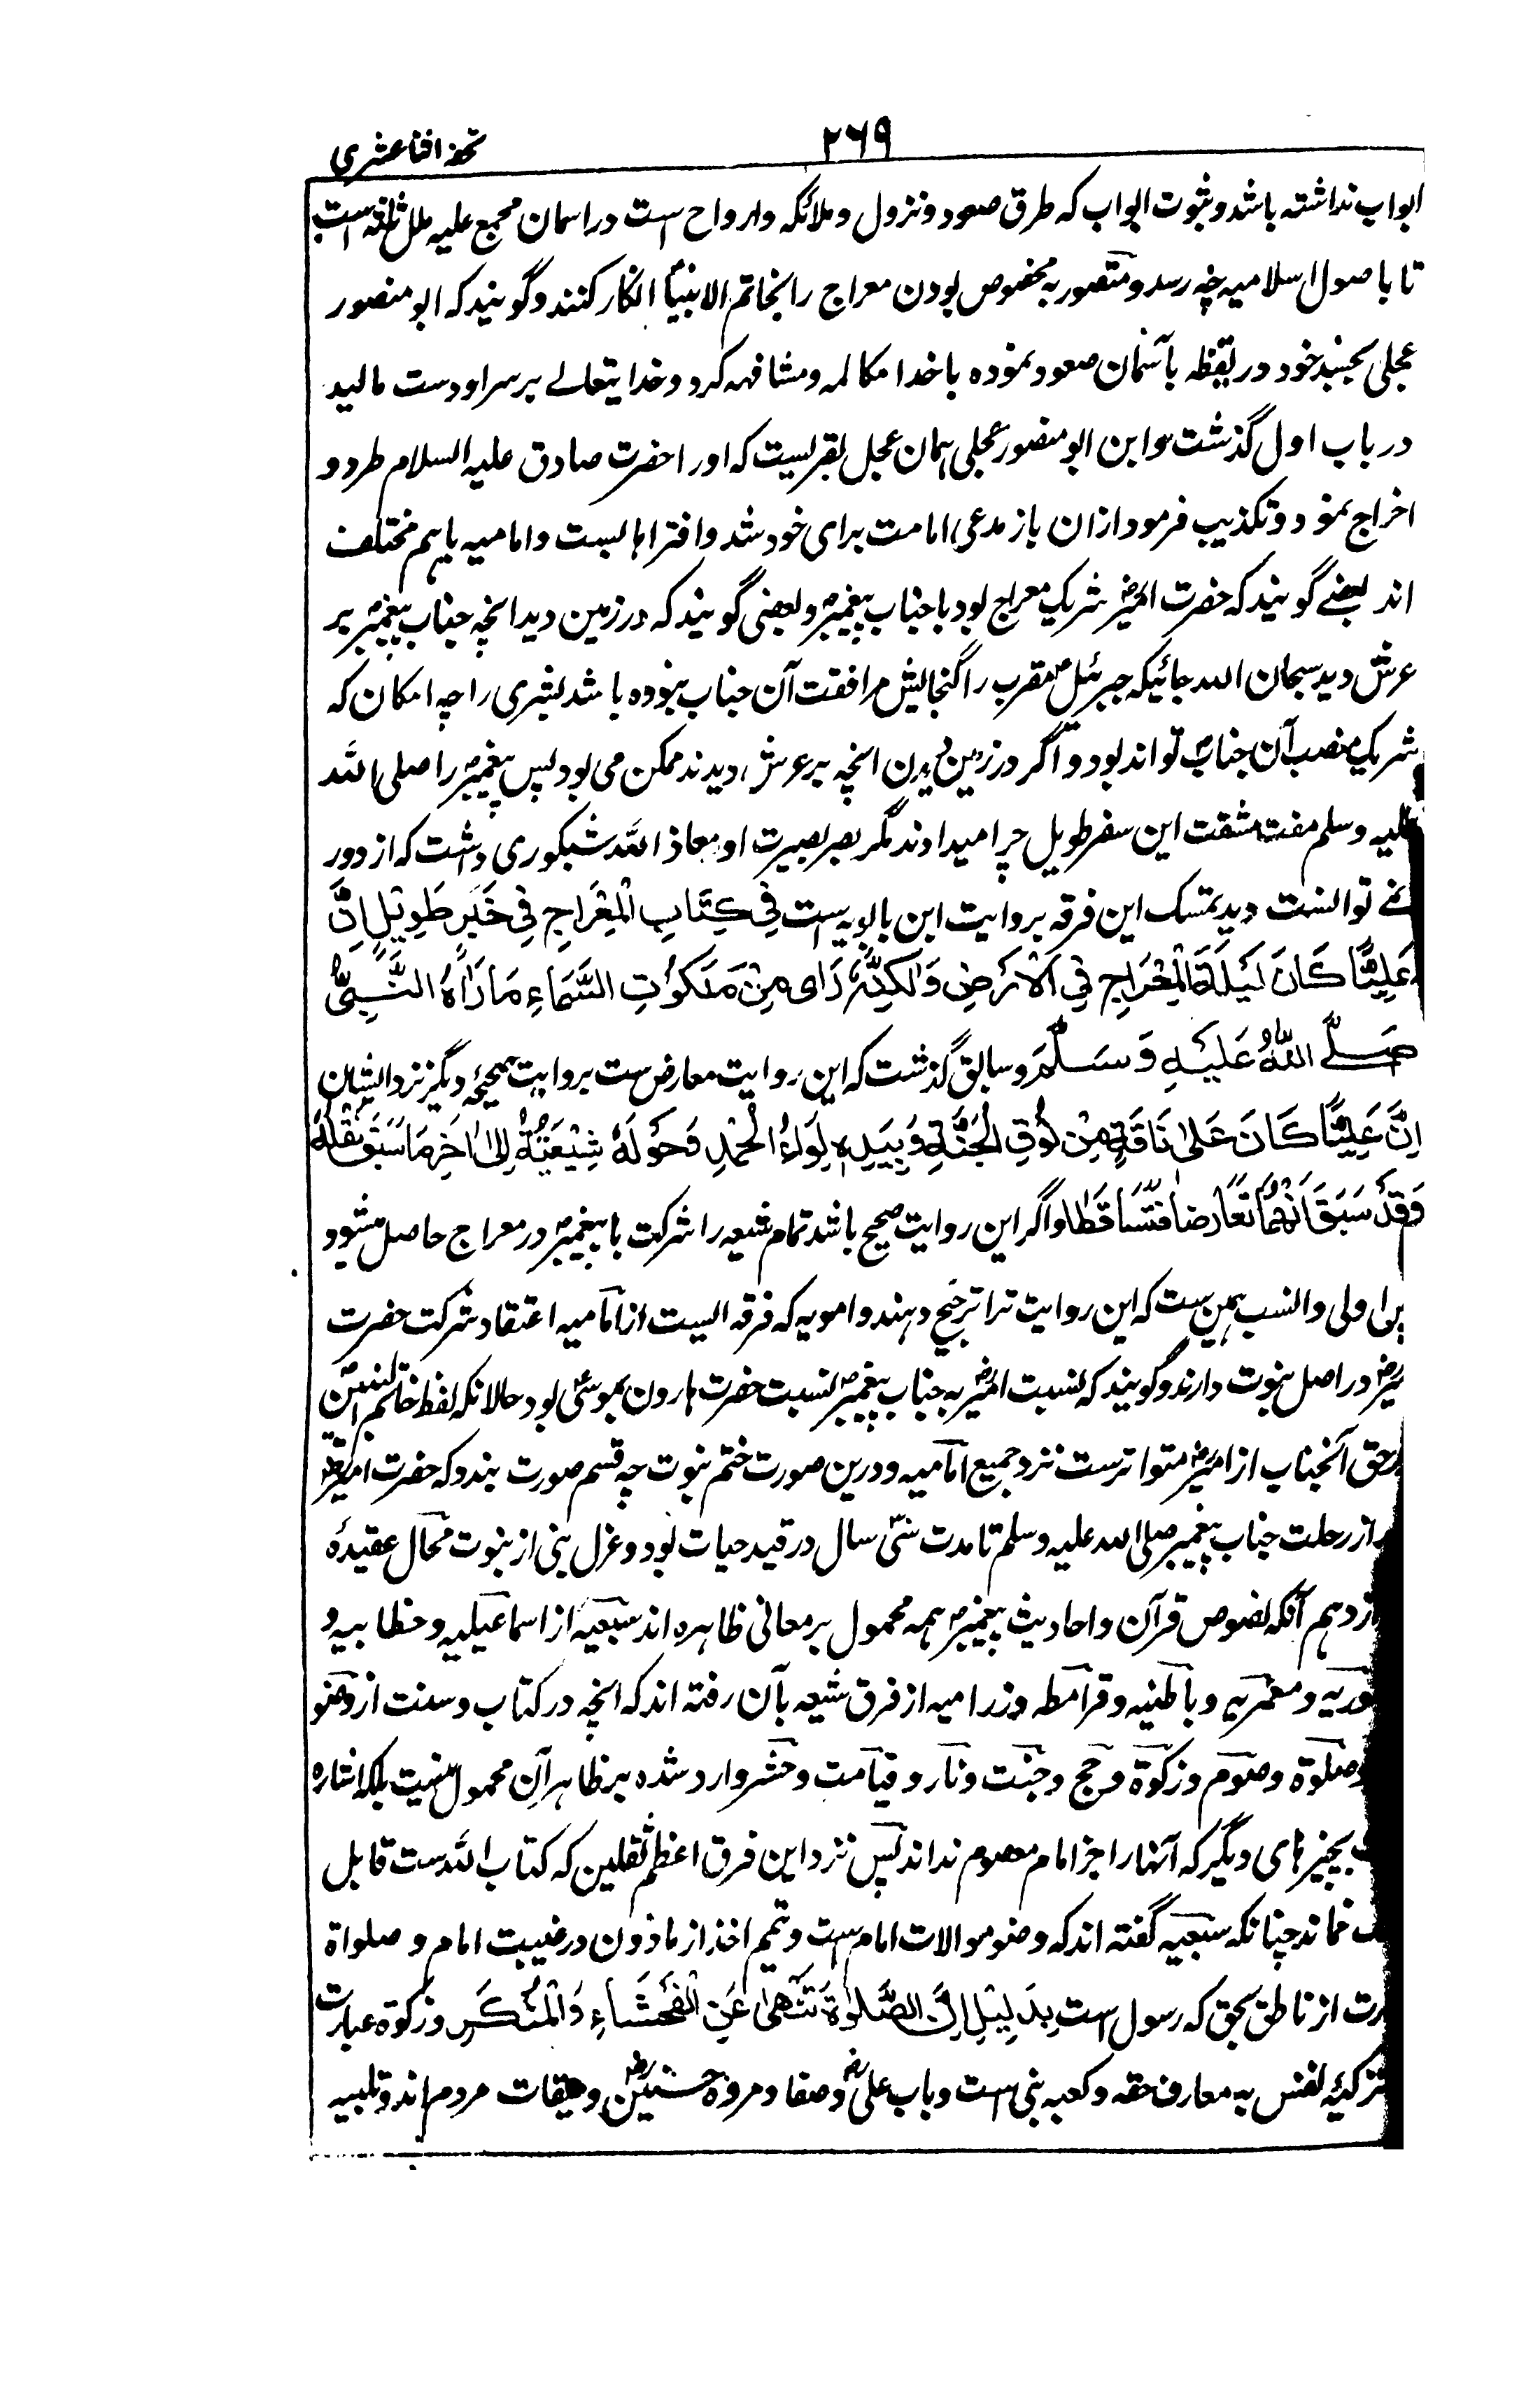 ۲۶۹
تحفہ اثنا عشری
ابواب نداشتہ باشد و ثبوت ابواب کہ طرق صعود و نزول و ملائکہ و ارواح است در اسمان مجمع علیہ ملل ثلثہ است
تا باصول اسلامیہ چہ رسد و منصوریہ مخصوص بودن معراج را بخاتم الانبیاؐ انکار کنند و گویند کہ ابو منصور
عجلی بجسد خود در یقظہ بآسمان صعود نمودہ با خدا مکالمہ و مشافہہ کرد و خدایتعالے بر سر او دست مالید
در باب اول گذشت و این ابو منصور عجلی ہمان عجل بقریست کہ او را حضرت صادق علیہ السلام طرد و
اخراج نمود و تکذیب فرمود ازان باز مدعی امامت برای خود شد و افتراہا بست و امامیہ باہم مختلف
اند بعضے گویند کہ حضرت امیرؓ شریک معراج بود با جناب پیغمبرؐ و بعضی گویند کہ در زمین دید انچہ جناب پیغمبرؐ بر
عرش دید سبحان اللہ جائیکہ جبرئیلؑ مقرب را گنجایش مرافقت آن جناب نبودہ باشد بشری را چہ امکان کہ
شریک منصب آن جنابؐ تواند بود و اگر در زمین دیدن انچہ بر عرش دیدند ممکن می بود پس پیغمبرؐ را صلی اللہ
علیہ وسلم مفت مشقت این سفر طویل چرا میدادند مگر بصر بصیرت او معاذ اللہ شبکوری داشت کہ از دور
نمے توانست دید تمسک این فرقہ بروایت ابن بابویہ است فِي كِتَابِ الْمِعْرَاجِ فِي خَبَرٍ طَوِيْلٍ اِنَّ
عَلِيًّا كَانَ لَيْلَةَ الْمِعْرَاجِ فِي الْاَرْضِ وَلٰكِنَّهٗ رَاٰى مِنْ مَلَكُوْتِ السَّمَاءِ مَا رَاٰهُ النَّبِيُّ
صَلَّے اللهُ عَلَيْهِ وَسَلَّمَ و سابق گذشت کہ این روایت معارض ست بروایت صحیحہٴ دیگر نزد ایشان
اِنَّ عَلِيًّا كَانَ عَلىٰ نَاقَةٍ مِنْ نُوْقِ الْجَنَّةِ وَبِيَدِهٖ لِوَاءُ الْحَمْدِ وَحَوْلَهٗ شِيْعَتُهٗ اِلىٰ اٰخِرِ مَا سَبَقَ نَقْلُهٗ
وَقَدْ سَبَقَ اَنَّهُمَا تَعَارَضَا فَتَسَاقَطَا و اگر این روایت صحیح باشد تمام شیعہ را شرکت با پیغمبرؐ در معراج حاصل میشود
اولی و انسب ہمین ست کہ این روایت ترا ترجیح دہند و امویہ کہ فرقہ ایست از امامیہ اعتقاد شرکت حضرت
در اصل نبوت دارند و گویند کہ نسبت امیرؓ بہ جناب پیغمبرؐ نسبت حضرت ہارون بموسیؑ بود حالانکہ لفظ خاتم النبیین
حق آنجناب از امیرؓ متواتر ست نزد جمیع امامیہ و درین صورت ختم نبوت چہ قسم صورت بندد کہ حضرت امیرؓ
از رحلت جناب پیغمبر صلی اللہ علیہ وسلم تا مدت سی سال در قید حیات بود و عزل نبی از نبوت محال عقیدہٴ
آنکہ نصوص قرآن و احادیث پیغمبرؐ ہمہ محمول بر معانی ظاہرہ اند سبعیہ از اسماعیلیہ و خطابیہ و
و معمریہ و باطنیہ و قرامطہ و زرامیہ از فرق شیعہ بآن رفتہ اند کہ انچہ در کتاب و سنت از وضو
و صلوۃ و صوم و زکوۃ و حج و جنت و نار و قیامت و حشر وارد شدہ بر ظاہر آن محمول نیست بلکہ اشارہ
بچیزہای دیگر کہ آنہا را جز امام معصوم نداند پس نزد این فرق اعظم ثقلین کہ کتاب اللہ ست قابل
نماند چنانکہ سبعیہ گفتہ اند کہ وضو موالات امام ست و تیمم اخذ از ماذون در غیبت امام و صلواۃ
از ناطق بحق کہ رسول است بِدَلِيْلِ اِنَّ الصَّلٰوةَ تَنْهٰى عَنِ الْفَحْشَاءِ وَالْمُنْكَرِ و زکوۃ عبارت
تزکیہٴ نفس بہ معارف حقہ و کعبہ نبی است و باب علیؓ و صفا و مروہ حسنینؓ و میقات مردم اند و تلبیہ